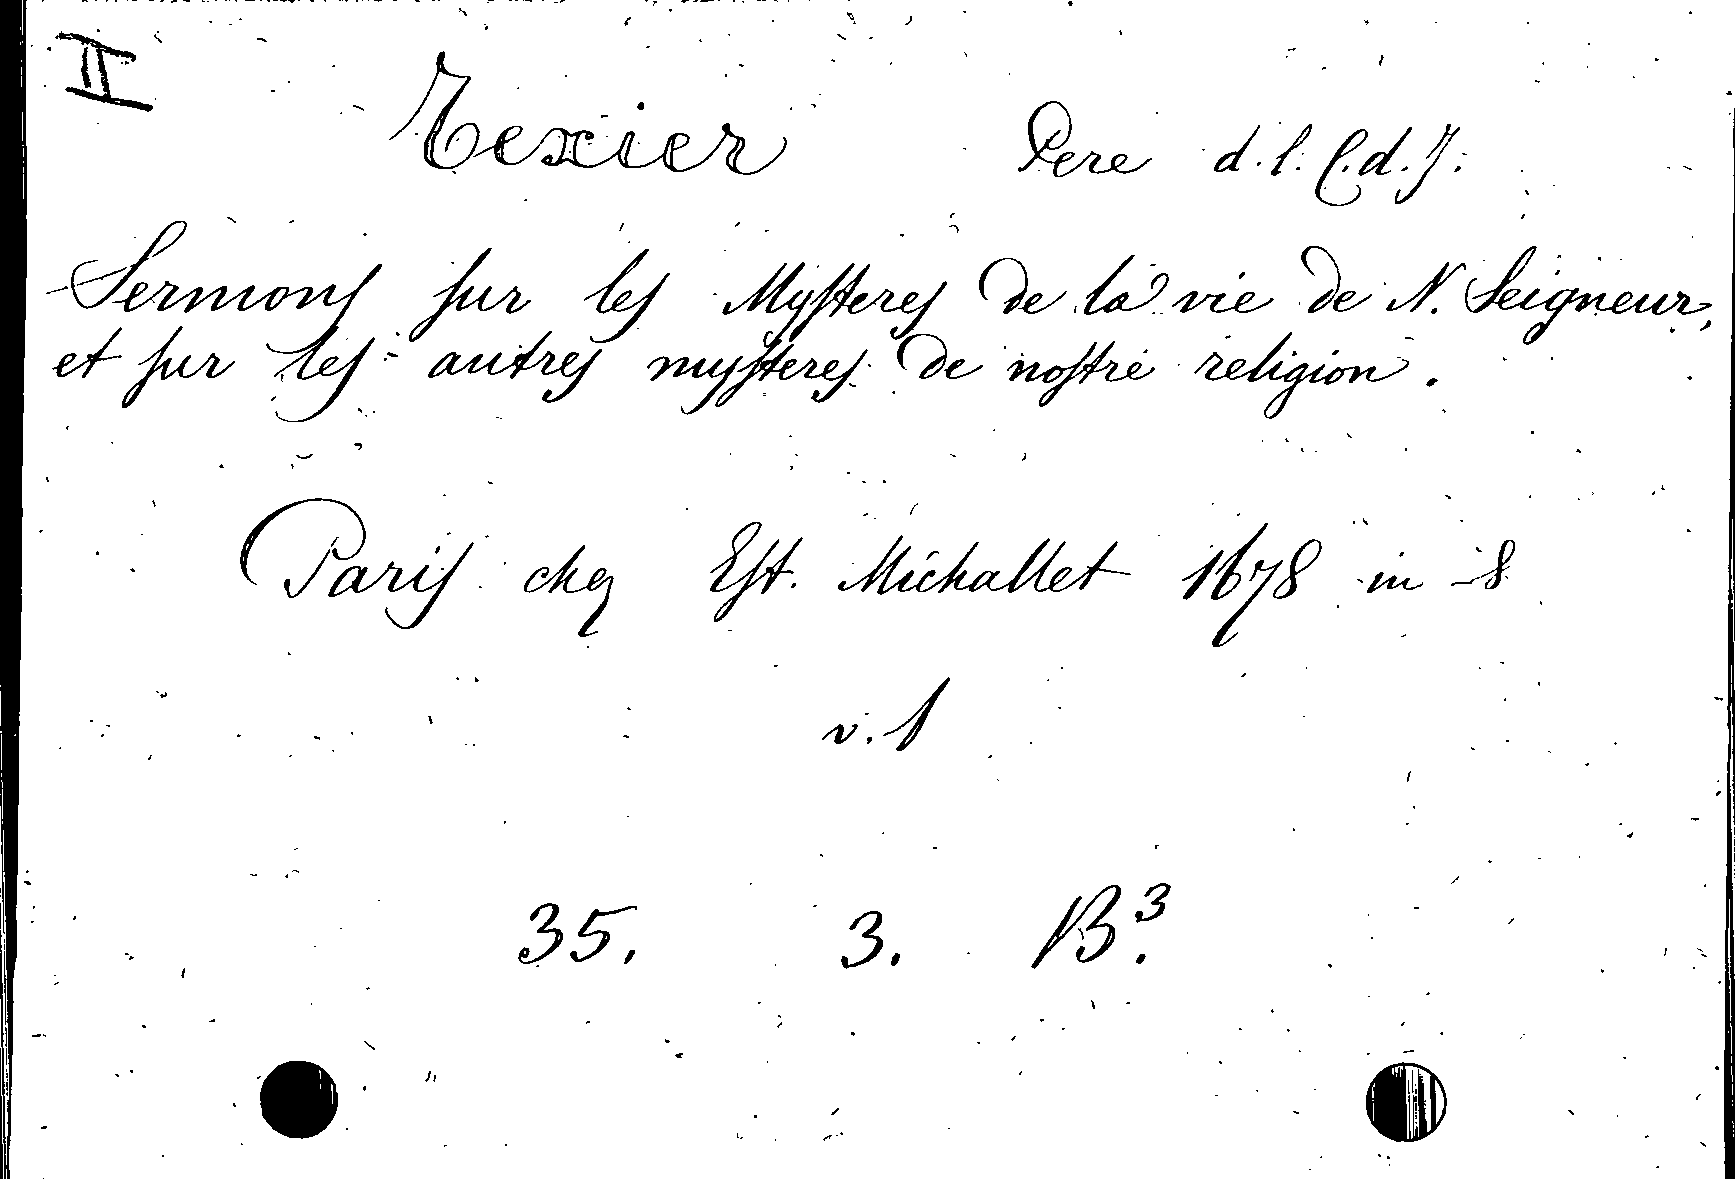 II
Texier Pere d. l. C. d. J.
Sermonſ ſur leſ Myſtereſ de la vie de N. Seigneur,
et ſur leſ autreſ myſtereſ de noſtre religion.
Pariſ chez Eſt. Michallet 1678 in 8
v. 1
35. 3. B³.